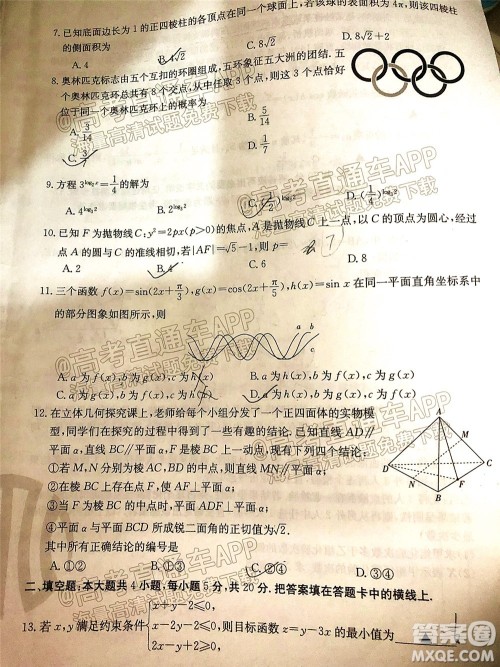 7. 已知底面边长为1的正四棱柱的各顶点在同一个球面上,若该球的表面积为4π,则该四棱柱
的侧面积为
A. √2 B. 4√2 C. 8√2 D. 8√2+2
8. 奥林匹克标志由五个互扣的环圈组成,五环象征五大洲的团结. 五
个奥林匹克环总共有8个交点,从中任取3个点,则这3个点恰好
位于同一个奥林匹克环上的概率为
A. 3/14 B. 5/14
C. 3/7 D. 1/7
9. 方程
A. 4 B. 2
10. 已知F为抛物线C:y²=2px(p>0)的焦点,A是抛物线C上一点,以C的顶点为圆心,经过
点A的圆与C的准线相切,若|AF|=√5-1,则p=
A. 2 B. 4 C. 6 D. 8
11. 三个函数f(x)=sin(2x+π/3),g(x)=cos(2x+π/5),h(x)=sin x在同一平面直角坐标系中
的部分图象如图所示,则
a b c
A. a为f(x),b为g(x),c为h(x) B. a为h(x),b为f(x),c为g(x)
C. a为g(x),b为f(x),c为h(x) D. a为h(x),b为g(x),c为f(x)
12. 在立体几何探究课上,老师给每个小组分发了一个正四面体的实物模
型,同学们在探究的过程中得到了一些有趣的结论. 已知直线AD∥
平面α,直线BC∥平面α,F是棱BC上一动点,现有下列四个结论:
①若M,N分别为棱AC,BD的中点,则直线MN∥平面α;
②在棱BC上存在点F,使AF⊥平面α;
③当F为棱BC的中点时,平面ADF⊥平面α;
④平面α与平面BCD所成锐二面角的正切值为√2.
其中所有正确结论的编号是
A. ①② B. ①③ C. ②④ D. ③④
A
M
D
C
N
F
B
二、填空题:本大题共4小题,每小题5分,共20分. 把答案填在答题卡中的横线上.
13. 若x,y满足约束条件{x+y-2≤0, x-2y-2≤0, 2x-y+2≥0,则目标函数z=y-3x的最小值为
高考直通车APP
海量高清试题免费下载
高考直通车APP
海量高清试题免费下载
高考直通车APP
海量高清试题免费下载